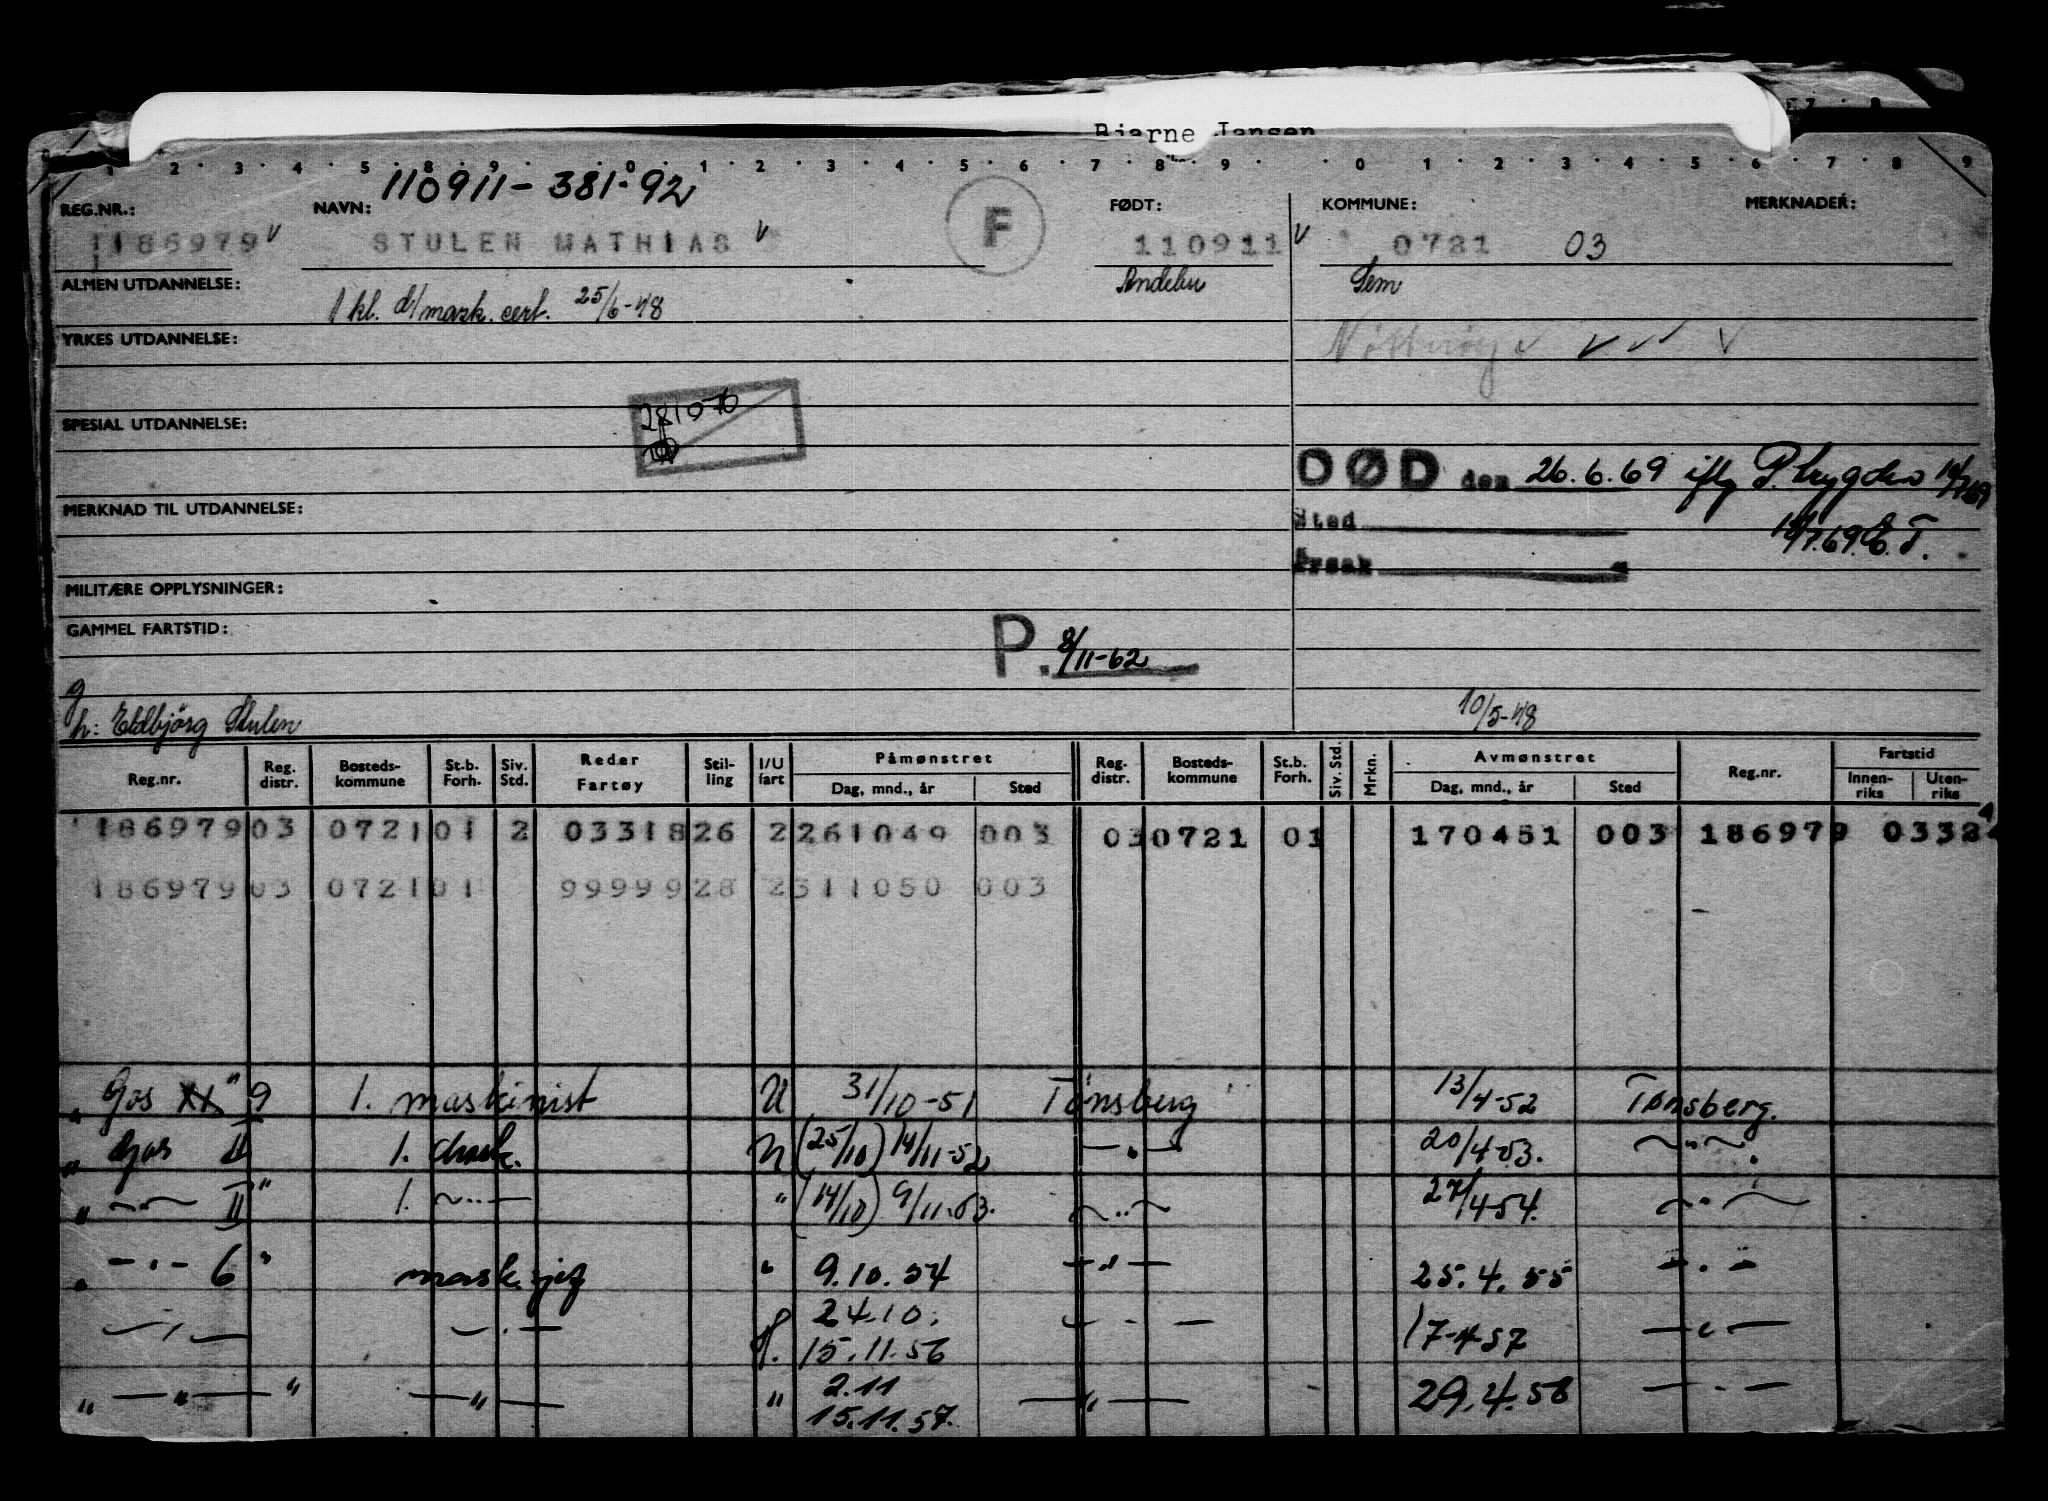 Bjarne Jansen
1 2 3 4 5 8 9 0 1 2 3 4 5 6 7 8 9 0 1 2 3 4 5 6 7 8 9
110911-381.92
REG.NR.: NAVN: FØDT: KOMMUNE: MERKNADER:
186979 v STULEN MATHIAS v F 110911 v 0721 03
ALMEN UTDANNELSE: Andebu Sem
1 kl. d/mask. cert. 25/6-48
YRKES UTDANNELSE: Nøtterøy
281070
SPESIAL UTDANNELSE:
DØD den 26.6.69 iflg P.trygden
MERKNAD TIL UTDANNELSE: Sted
Årsak
MILITÆRE OPPLYSNINGER:
GAMMEL FARTSTID:
P. 8/11-62
g
h: Eldbjörg Stulen 10/5-48
Reg.nr. Reg. distr. Bosteds-kommune St.b. Forh. Siv. Std. Reder Fartøy Stil-ling I/U fart Påmønstret Dag, mnd., år Sted Reg-distr. Bosteds-kommune St.b. Forh. Siv. Std. Mrkn. Avmønstret Dag, mnd., år Sted Reg.nr. Fartstid Innen-riks Uten-riks
186979 03 0721 01 2 03318 26 2 261049 003 03 0721 01 170451 003 186979 0332
186979 03 0721 01 99999 28 2 311050 003
„ Gos XX" 9 1. maskinist U 31/10-51 Tønsberg 13/4-52 Tønsberg.
„ Gos II 1. mask. U (25/10) 14/11-52 —„— 20/4-53. —"—.
„ —..— II" 1. —..— " (14/10) 9/11.53. —..— 27/4-54. —"—
„ —.— 6 " mask.sjef " 9.10.54 —"— 25.4.55 —.—
—,— —.— 24.10.
15.11.56 —.— 17-4-57 —"—
„ —"— " —"— " 2.11
15.11.57. —"— 29.4.58 —.—